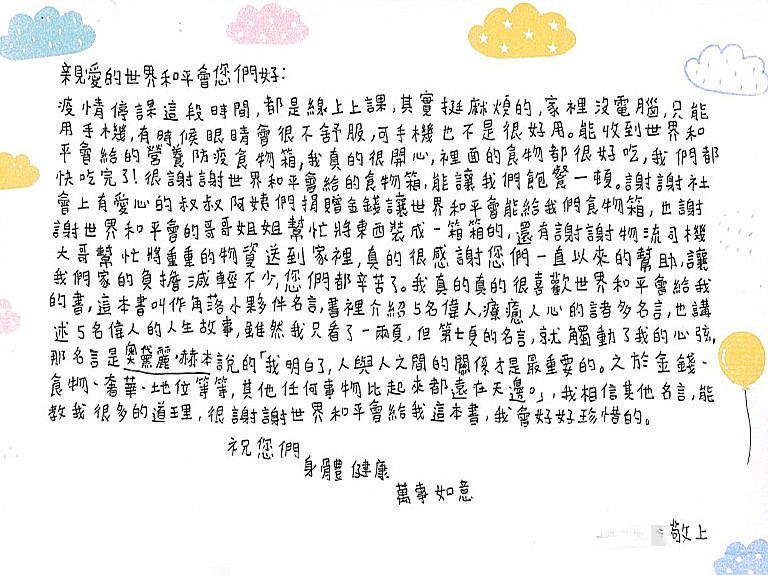 親愛的世界和平會您們好：
疫情停課這段時間，都是線上上課，其實挺麻煩的，家裡沒電腦，只能
用手機，有時候眼睛會很不舒服，可手機也不是很好用。能收到世界和
平會給的營養防疫食物箱，我真的很開心，裡面的食物都很好吃，我們都
快吃完了！很謝謝世界和平會給的食物箱，能讓我們飽餐一頓。謝謝社
會上有愛心的叔叔阿姨們捐贈金錢讓世界和平會能給我們食物箱，也謝
謝世界和平會的哥哥姐姐幫忙將東西裝成一箱箱的，還有謝謝物流司機
大哥幫忙將重重的物資送到家裡，真的很感謝您們一直以來的幫助，讓
我們家的負擔減輕不少，您們都辛苦了。我真的真的很喜歡世界和平會給我
的書，這本書叫作角落小夥伴名言，書裡介紹5名偉人，療癒人心的諸多名言，也講
述5名偉人的人生故事，雖然我只看了一兩頁，但第七頁的名言，就觸動了我的心弦，
那名言是奧黛麗·赫本說的「我明白了，人與人之間的關係才是最重要的。之於金錢、
食物、奢華、地位等等，其他任何事物比起來都遠在天邊。」，我相信其他名言，能
教我很多的道理，很謝謝世界和平會給我這本書，我會好好珍惜的。
祝您們
身體健康
萬事如意
敬上